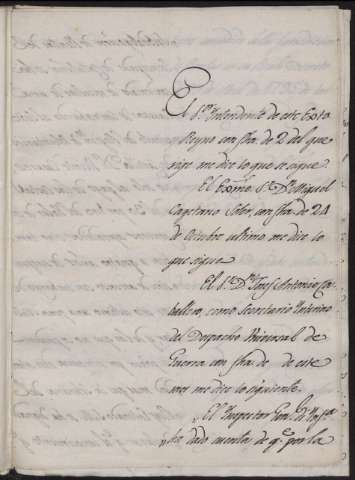 El S.r Yntendente de este Exto
Reyno con fha de 2 del que
rige me dice lo que se sigue
El Exmo S.r D.n Miguel
Cayetano Soler, con fha de 24
de Octubre ultimo me dice lo
que sigue
El S.r D.n Josef Antonio Ca-
ballero, como Secretario Ynterino
del Despacho Universal de
Guerra con fha de de este
mes me dice lo siguiente
El Ynspector Gen.l de
ha dado cuenta de q.e por la